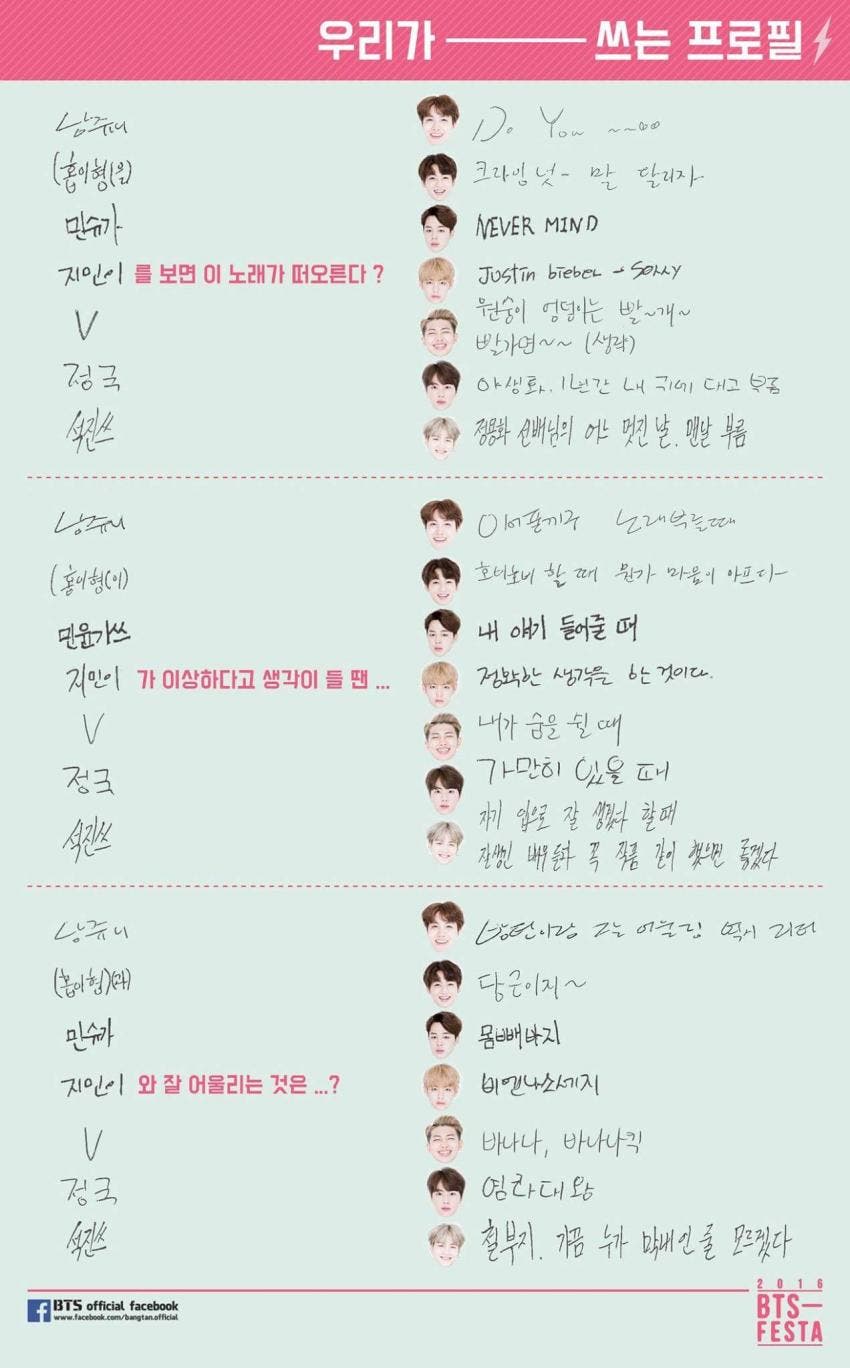 우리가 ——— 쓰는 프로필
남쥬니 Do You ~~∞
(홉이형(을) 크라잉넛- 말 달리자
민슈가 NEVER MIND
지민이 를 보면 이 노래가 떠오른다 ? Justin bieber → Sorry
V 원숭이 엉덩이는 빨~개~
빨가면~~ (생략)
정국 야생화. 1년간 내 귀에 대고 부름
석진쓰 정용화 선배님의 어느 멋진 날. 맨날 부름
남쥬니 이어폰끼구 노래부를때
(홉이형(이) 호비호비 할 때 뭔가 마음이 아프다
민윤기쓰 내 얘기 들어줄 때
지민이 가 이상하다고 생각이 들 땐 ... 정확한 생각을 한 것이다.
V 내가 숨을 쉴 때
정국 가만히 있을 때
석진쓰 자기 입으로 잘 생겼다 할 때
잘생긴 배우분과 꼭 작품 같이 했으면 좋겠다
남쥬니 방탄이랑 어울림 역시 리더
(홉이형)(과) 당근이지~
민슈가 몸빼바지
지민이 와 잘 어울리는 것은 ...? 비엔나소세지
V 바나나, 바나나킥
정국 염라대왕
석진쓰 철부지. 가끔 누가 막내인 줄 모르겠다
2016
BTS—
FESTA
BTS official facebook
www.facebook.com/bangtan.official